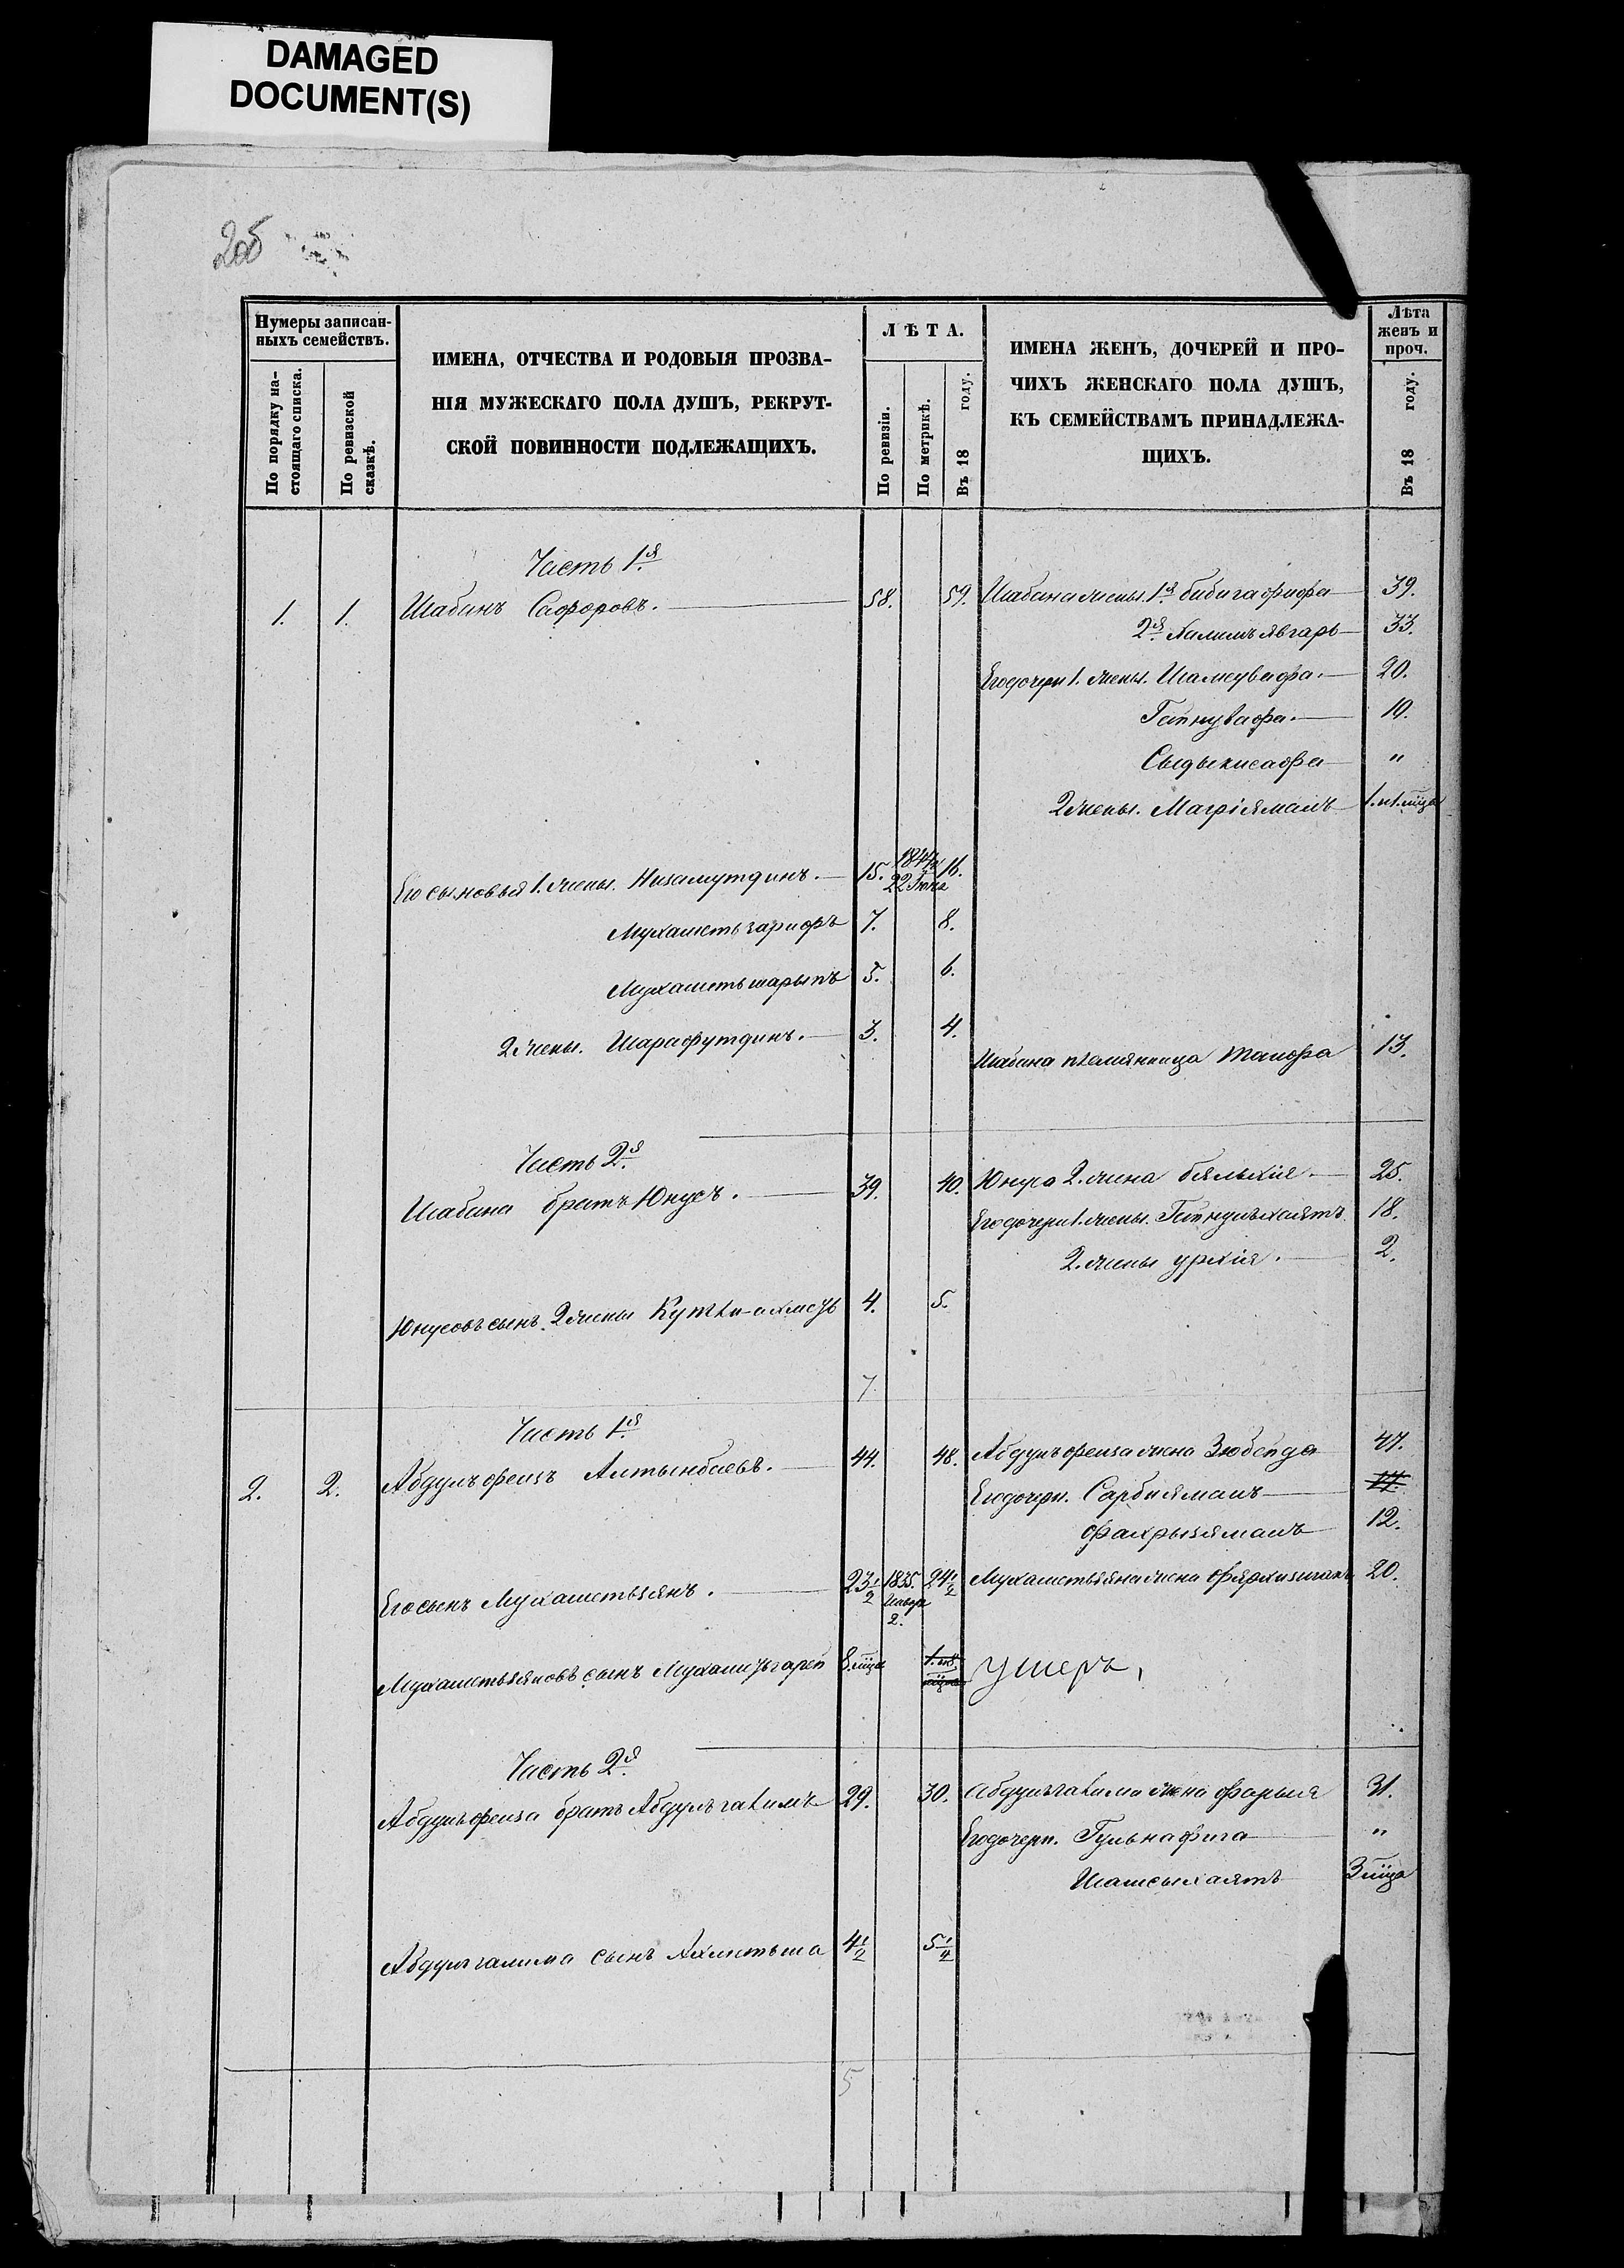 DAMAGED
DOCUMENT(S)
205
Нумеры записан-
ныхъ семействъ.
По порядку на-
стоящаго списка.
По ревизской
сказкѣ.
ИМЕНА, ОТЧЕСТВА И РОДОВЫЯ ПРОЗВА-
НІЯ МУЖЕСКАГО ПОЛА ДУШЪ, РЕКРУТ-
СКОЙ ПОВИННОСТИ ПОДЛЕЖАЩИХЪ.
ЛѢТА.
По ревизіи.
По метрикѣ.
Въ 18 году.
ИМЕНА ЖЕНЪ, ДОЧЕРЕЙ И ПРО-
ЧИХЪ ЖЕНСКАГО ПОЛА ДУШЪ,
КЪ СЕМЕЙСТВАМЪ ПРИНАДЛЕЖА-
ЩИХЪ.
Лѣта
женъ и
проч.
Въ 18 году.
Часть 1.я
1. 1. Шабанъ Сафоровъ. 58. 59. Шабана жены 1.я бибигафифа 39.
2.я Халимъявгарь 33.
Его дочери 1. жены. Шамсувафа. 20.
Гайнувафа. 10.
Сыдыкисафа "
2 жены. Магріямалъ 1. и 1. мца
Его сыновья 1. жены. Низамутдинъ. 15. 1844 22 Іюня 16.
Мухаметьзарифъ 7. 8.
Мухаметьшарыпъ 5. 6.
2 жены. Шарафутдинъ. 3. 4.
Шабана племянница Таифа 13.
Часть 2.я
Шабана братъ Юнусъ. 39. 40. Юнуса 2. жена бяльхія 25.
Его дочери 1. жены. Гайнульхаятъ 18.
2. жены урхія. 2.
Юнусовъ сынъ 2 жены Кутлу-ахметь 4. 5.
7
Часть 1.я
2. 2. Абдулъфеизъ Алтынбаевъ. 44. 48. Абдулъфеиза жена Зюбейда 47.
Его дочери. Сарбиямалъ 17.
Фахрыямалъ 12.
Его сынъ Мухаметьзянъ. 23 1/2 1835. Января 2. 24 1/2 Мухаметьзяна жена Фярхизиганъ 20.
Мухаметьзяновъ сынъ Мухаметьгарей 8 мцы 1. и 8 мцов умеръ,
Часть 2.я
Абдулъфеиза братъ Абдулъгалимъ 29. 30. Абдулъгалима жена фарыя 31.
Его дочери. Гульнафига "
Шамсыхаятъ 3 мца
Абдулгалима сынъ Ахметьша 4 1/2 5 1/4
5